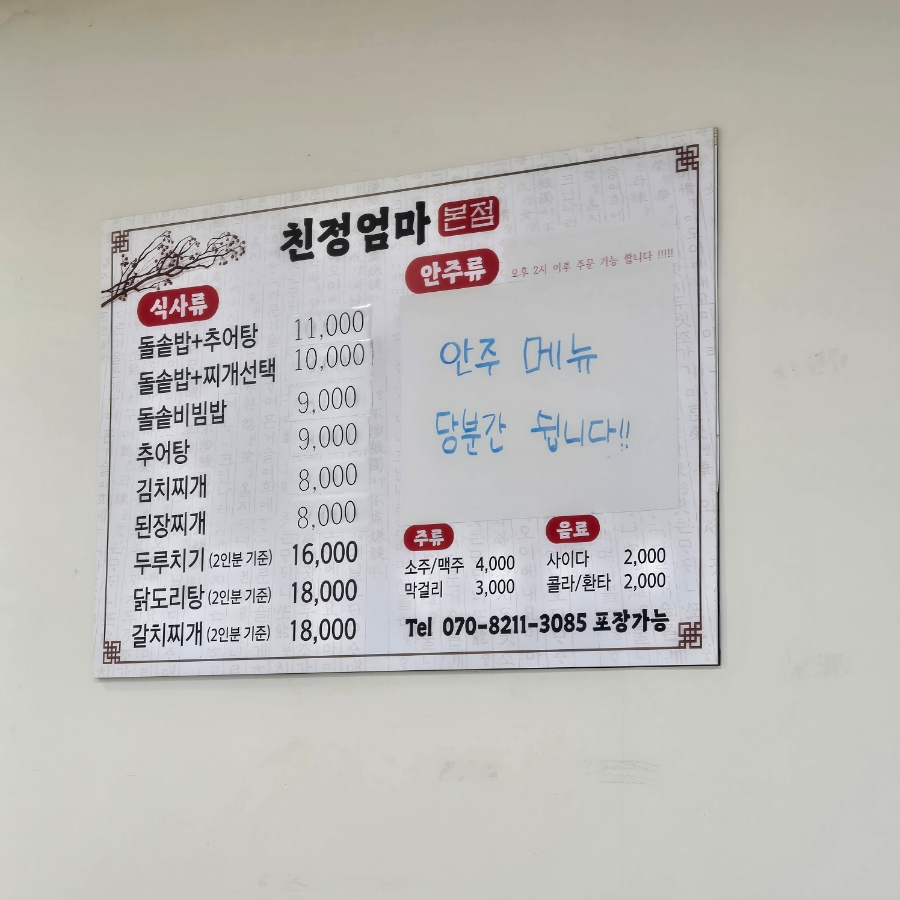 친정엄마 본점
식사류
돌솥밥+추어탕 11,000
돌솥밥+찌개선택 10,000
돌솥비빔밥 9,000
추어탕 9,000
김치찌개 8,000
된장찌개 8,000
두루치기 (2인분 기준) 16,000
닭도리탕 (2인분 기준) 18,000
갈치찌개 (2인분 기준) 18,000
안주류 오후 2시 이후 주문 가능 합니다 !!!!!
안주 메뉴
당분간 쉽니다!!
주류
소주/맥주 4,000
막걸리 3,000
음료
사이다 2,000
콜라/환타 2,000
Tel 070-8211-3085 포장가능